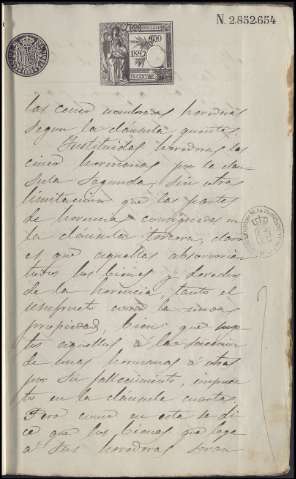 N. 2.852.654
1892
las cinco nombradas herederas
segun la cláusula cuarta.
Instituidas herederas las
cinco hermanas por la cláu-
sula segunda, sin otra
limitacion que las partes
de herencia consignadas en
la cláusula tercera, claro
es que aquellas absorvian
todos los bienes y derechos
de la herencia, tanto el
usufructo como la nuda
propiedad, bien que
aquellos á la
de unas hermanas á otras
por su fallecimiento, impues-
to en la cláusula cuarta.
Pero como en esta se di-
ce que los bienes que lega
á sus herederas seran